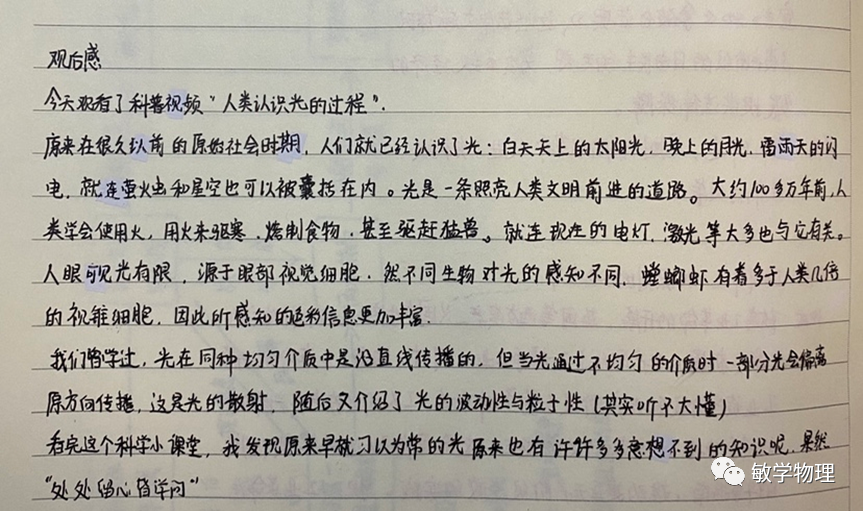 观后感
今天观看了科普视频“人类认识光的过程”.
原来在很久以前的原始社会时期,人们就已经认识了光:白天天上的太阳光.晚上的月光.雷雨天的闪
电.就连萤火虫和星空也可以被囊括在内。光是一条照亮人类文明前进的道路。大约100多万年前,人
类学会使用火,用火来驱寒.烧制食物.甚至驱赶猛兽。就连现在的电灯.激光等大多也与它有关。
人眼可见光有限,源于眼部视觉细胞.然不同生物对光的感知不同.螳螂虾有着多于人类几倍
的视锥细胞.因此所感知的色彩信息更加丰富.
我们曾学过,光在同种均匀介质中是沿直线传播的,但当光通过不均匀的介质时一部分光会偏离
原方向传播,这是光的散射.随后又介绍了光的波动性与粒子性(其实听不大懂)
看完这个科学小课堂,我发现原来早就习以为常的光原来也有许许多多意想不到的知识呢.果然
“处处留心皆学问”
敏学物理